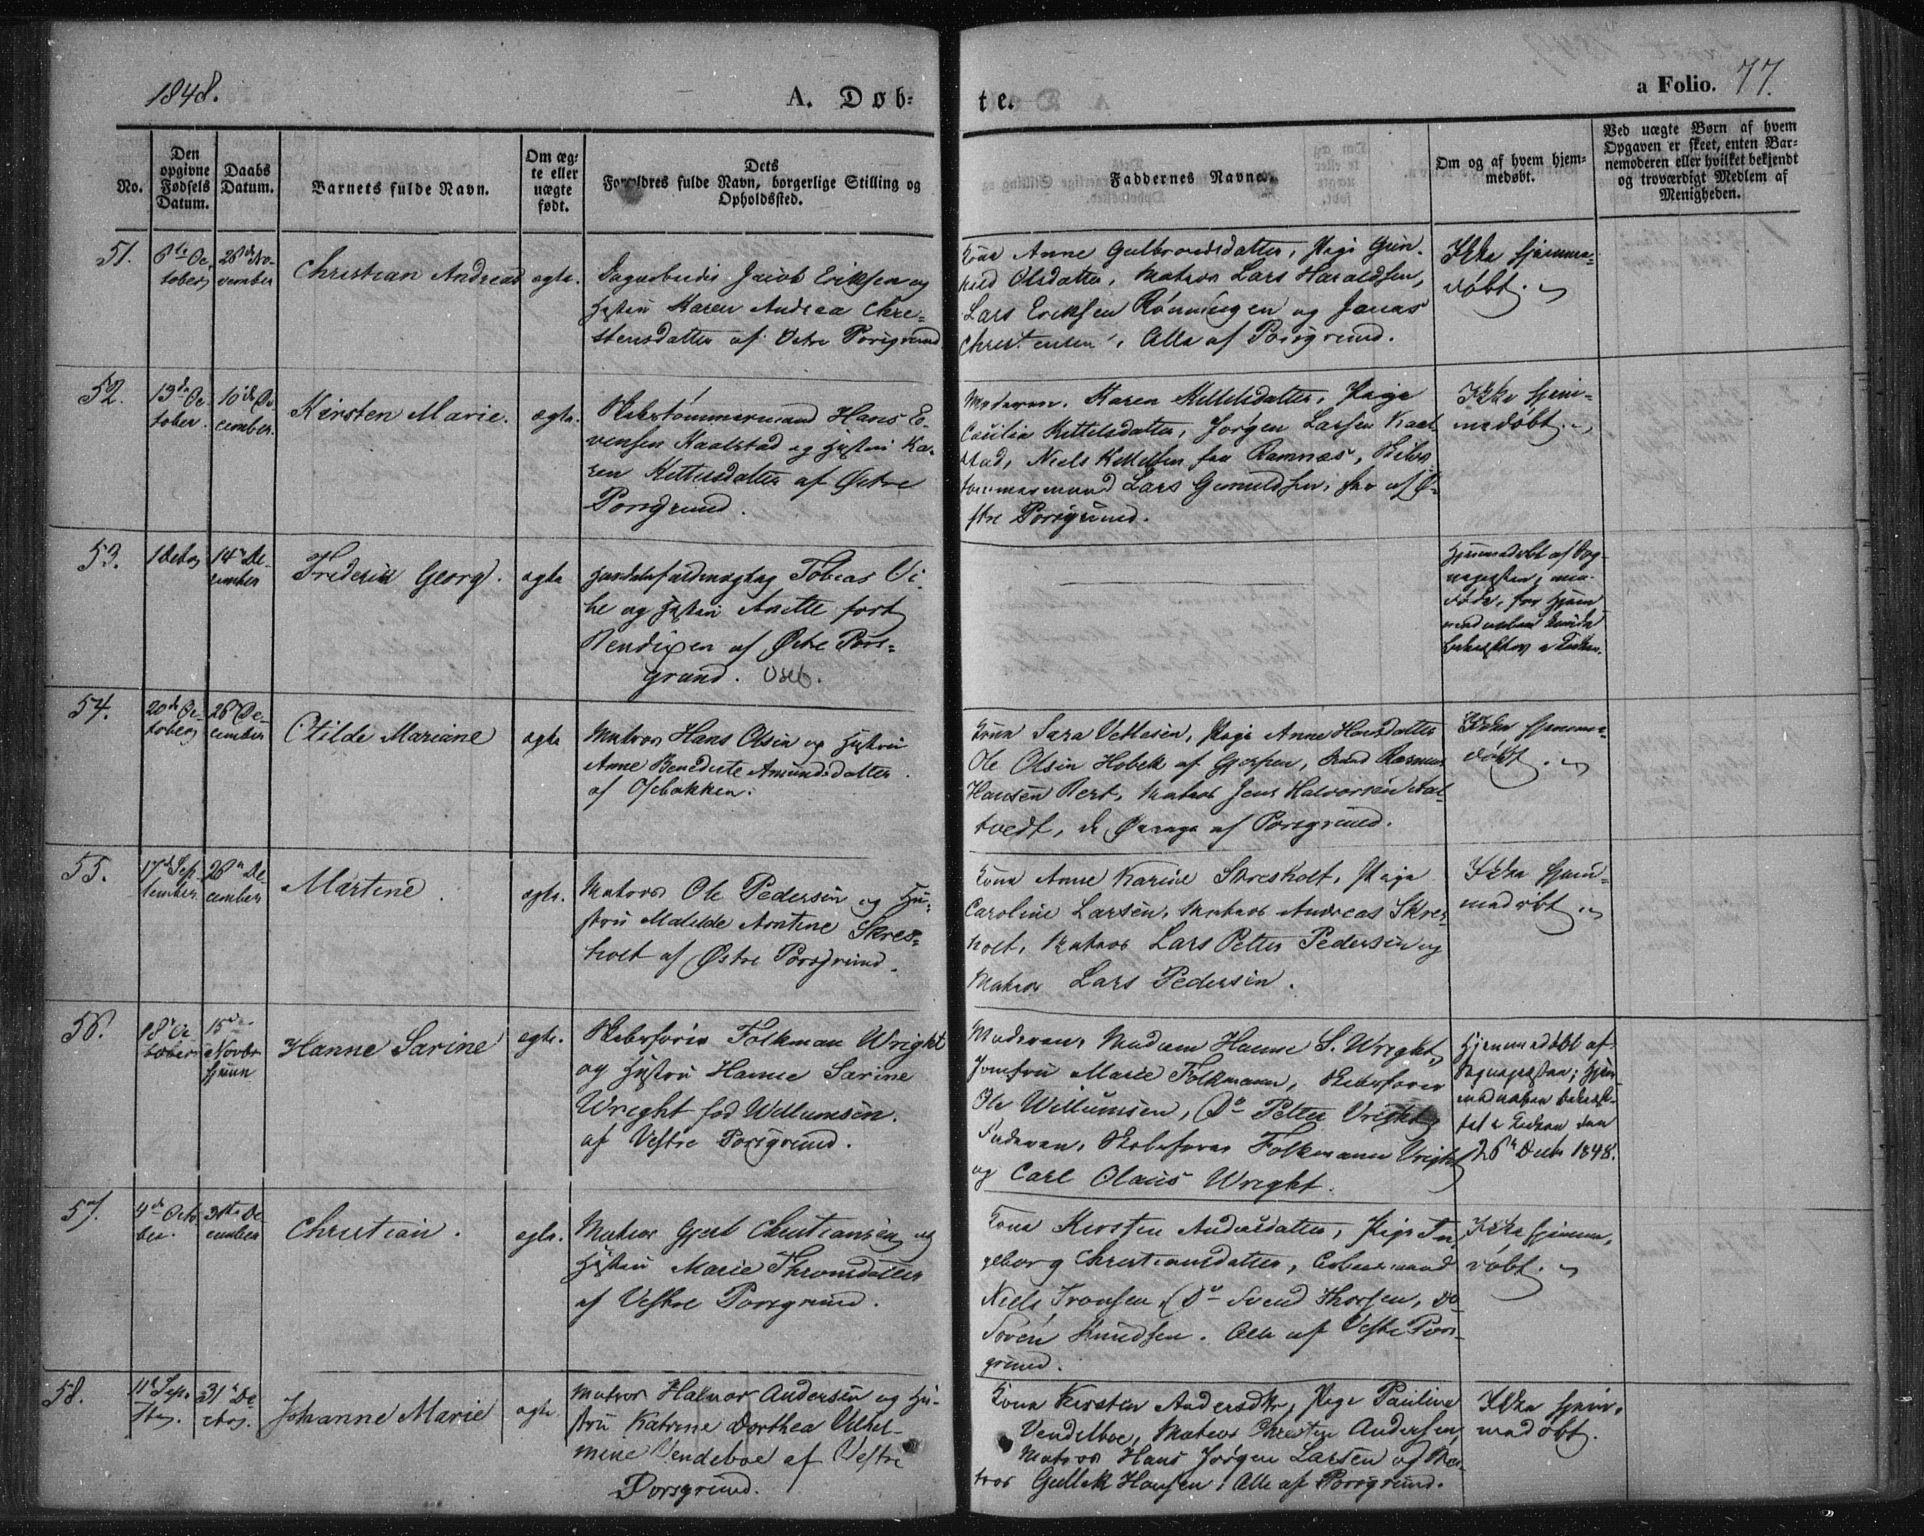 1848.
A. Døb-
te.
a Folio. 77.
No.
Den opgivne Fødsels Datum.
Daabs Datum.
Barnets fulde Navn.
Om ægte eller uægte født.
Dets Forældres fulde Navn, borgerlige Stilling og Opholdssted.
Faddernes Navne.
Om og af hvem hjemmedøbt.
Ved uægte Børn af hvem
Opgaven er skeet, enten Bar-
nemoderen eller hvilket bekjendt
og troværdigt Medlem af
Menigheden.
51.
6te Oc-
tober
26de No-
vember
Christian Andreas
ægte.
Dagarbeider Jacob Eriksen og
Hustru Karen Andrea Chri-
stensdatter af Østre Porsgrund.
Kone Anne Gulbrandsdatter, Pige Gun-
hild Olsdatter, Matros Lars Haraldsen,
Lars Eriksen Rønningen og Jonas
Christensen, Alle af Porsgrund.
Ikke hjemme-
døbt.
52.
13de Oc-
tober.
10de De-
cember.
Kirsten Marie.
ægte.
Skibstømmermand Hans E-
vensen Kaalstad og Hustru Ka-
ren Kittilsdatter af Østre
Porsgrund.
Moderen Karen Kittilsdatter, Pige
Cecilia Kittelsdatter, Jørgen Larsen Kaal-
stad, Niels Kittilsen fra Ramnæs, Skibs-
tømmermand Lars Gunuldsen, ... af Ø-
stre Porsgrund.
Ikke hjem-
medøbt.
53.
14de De-
cember
Frederik Georg.
ægte
Handelsfuldmægtig Tobias Vi-
be og Hustru Anette født
Bendixen af Østre Pors-
grund.
Hjemmedøbt af Sog-
nepresten;
54.
20de Oc-
tober
26de De-
cember
Otilde Mariane
ægte
Matros Hans Olsen og Hustru
Anne Benedicte Amundsdatter
af Osebakken.
Kone Sara Vetlesen, Pige Anne Hansdatter
Ole Olsen Hobek af Gjerpen, Rasmus
Hansen Bert, Matros Jens Halvorsen Aal-
tvedt, de Øvrige af Porsgrund.
Ikke hjemme-
døbt.
55.
17de Sep-
tember
26de De-
cember
Martine
ægte.
Matros Ole Pedersen og Hu-
stru Matilde Arntine Skres-
holt af Østre Porsgrund.
Kone Anne Karine Skresholt, Pige
Caroline Larsen, Matros Andreas Skres-
holt, Matros Lars Petter Pedersen og
Matros Lars Pedersen.
Ikke hjem-
medøbt
56.
18de Oc-
tober
15de
Novbr
hjem
Hanne Sarine
ægte.
Skibsfører Folkman Wright
og Hustru Hanne Sarine
Wright fød Willumsen.
af Vestre Porsgrund.
Moderen, Madam Hanne S. Wright,
Jomfru Marie Folkmann, Skibsfører
Ole Willumsen, Do Petter Wright,
Faderen, Skibsfører Folkmann Wright
og Carl Olaus Wright.
Hjemmedøbt af
Sognepresten; Hjem-
medaaben bekræf-
tet i Kirken den
26de Decbr 1848.
57.
4de Octo-
ber.
31te De-
cember
Christian.
ægte.
Matros Gjert Christiansen og
Hustru Marie Thronsdatter
af Vestre Porsgrund.
Kone Kirsten Andersdatter, Pige In-
geborg Christiansdatter, Arbeidsmand
Niels Tronsen, Do Svend Thorsen, Do
Søren Knudsen. Alle af Vestre Pors-
grund.
Ikke hjemme-
døbt.
58.
11te Sep-
tbr.
31te De-
cbr.
Johanne Marie
ægte.
Matros Halvor Andersen og Hu-
stru Katrine Dorthea Vilhel-
mine Vendelboe af Vestre
Porsgrund.
Kone Kirsten Andersdtr, Pige Pauline
Vendelboe, Matros Christen Andersen,
Matros Hans Jørgen Larsen og Ma-
tros Gullik Hansen, Alle af Porsgrund.
Ikke hjem-
medøbt.